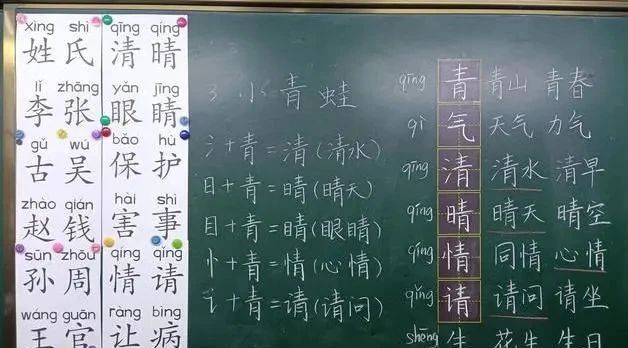 xìng shì
姓 氏
lǐ zhāng
李 张
gǔ wú
古 吴
zhào qián
赵 钱
sūn zhōu
孙 周
wáng guān
王 官
qīng qíng
清 晴
yǎn jīng
眼 睛
bǎo hù
保 护
hài shì
害 事
qíng qǐng
情 请
ràng bìng
让 病
3 小青蛙
氵+青=清(清水)
日+青=晴(晴天)
目+青=睛(眼睛)
忄+青=情(心情)
讠+青=请(请问)
qīng 青 青山 青春
qì 气 天气 力气
qīng 清 清水 清早
qíng 晴 晴天 晴空
qíng 情 同情 心情
qǐng 请 请问 请坐
shēng 生 花生 生日